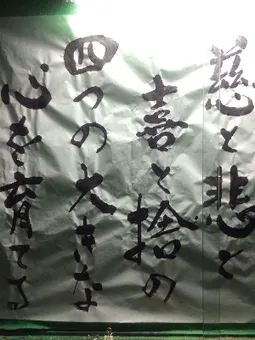 慈と悲と
喜と捨の
四つの大きな
心を育てる